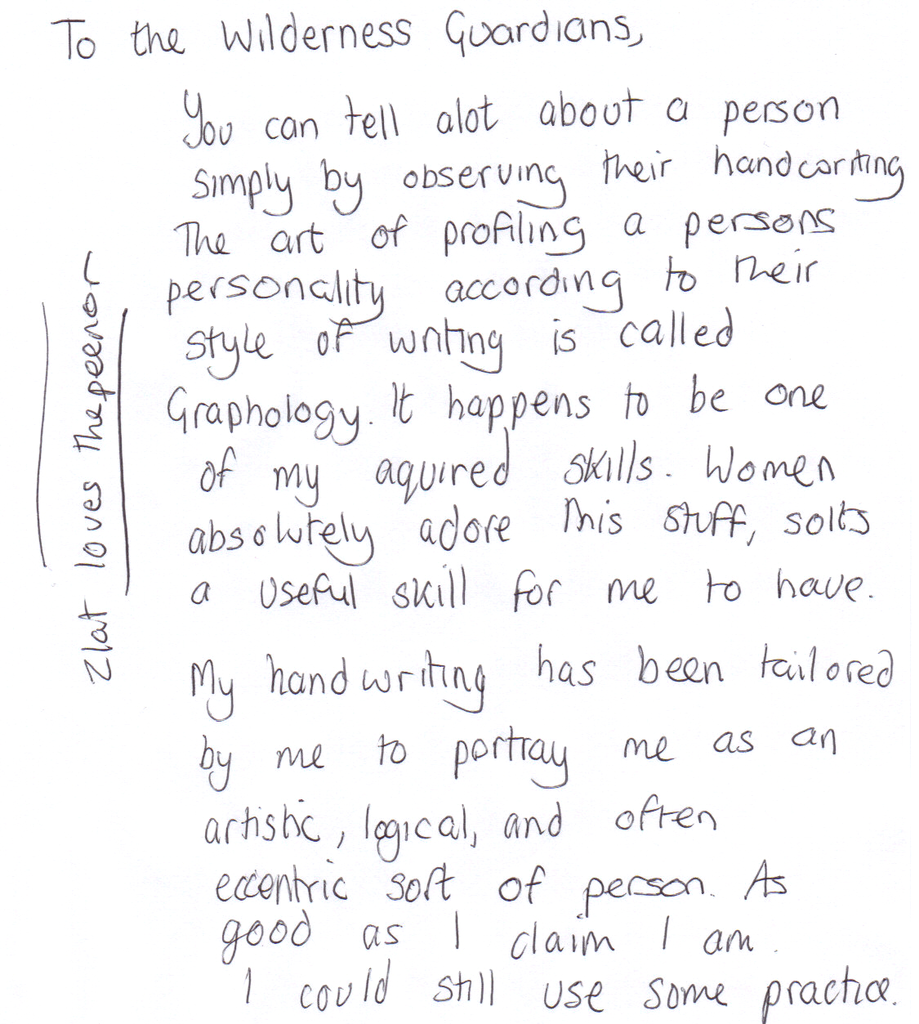 To the Wilderness Guardians,
You can tell alot about a person
simply by observing their handwriting
The art of profiling a persons
personality according to their
style of writing is called
Graphology. It happens to be one
of my aquired skills. Women
absolutely adore this stuff, so its
a useful skill for me to have.
My handwriting has been tailored
by me to portray me as an
artistic, logical, and often
eccentric sort of person. As
good as I claim I am.
I could still use some practice.
Zlat loves thepeenor